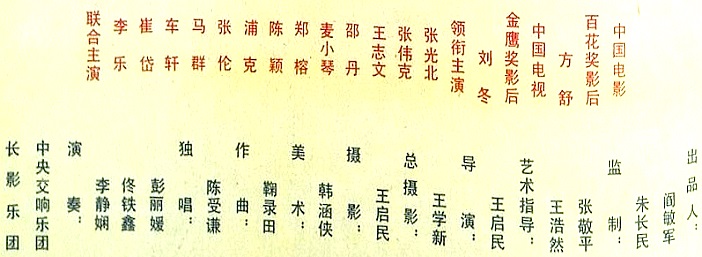 中国电影
百花奖影后
方舒
中国电视
金鹰奖影后
刘冬
领衔主演
张光北
张伟克
王志文
邵丹
麦小琴
郑榕
陈颖
浦克
张伦
马群
车轩
崔岱
李乐
联合主演
出品人：
阎敏军
朱长民
监制：
张敬平
王浩然
艺术指导：
王启民
导演：
王学新
总摄影：
王启民
摄影：
韩涵侠
美术：
鞠录田
作曲：
陈受谦
独唱：
彭丽媛
佟铁鑫
李静娴
演奏：
中央交响乐团
长影乐团